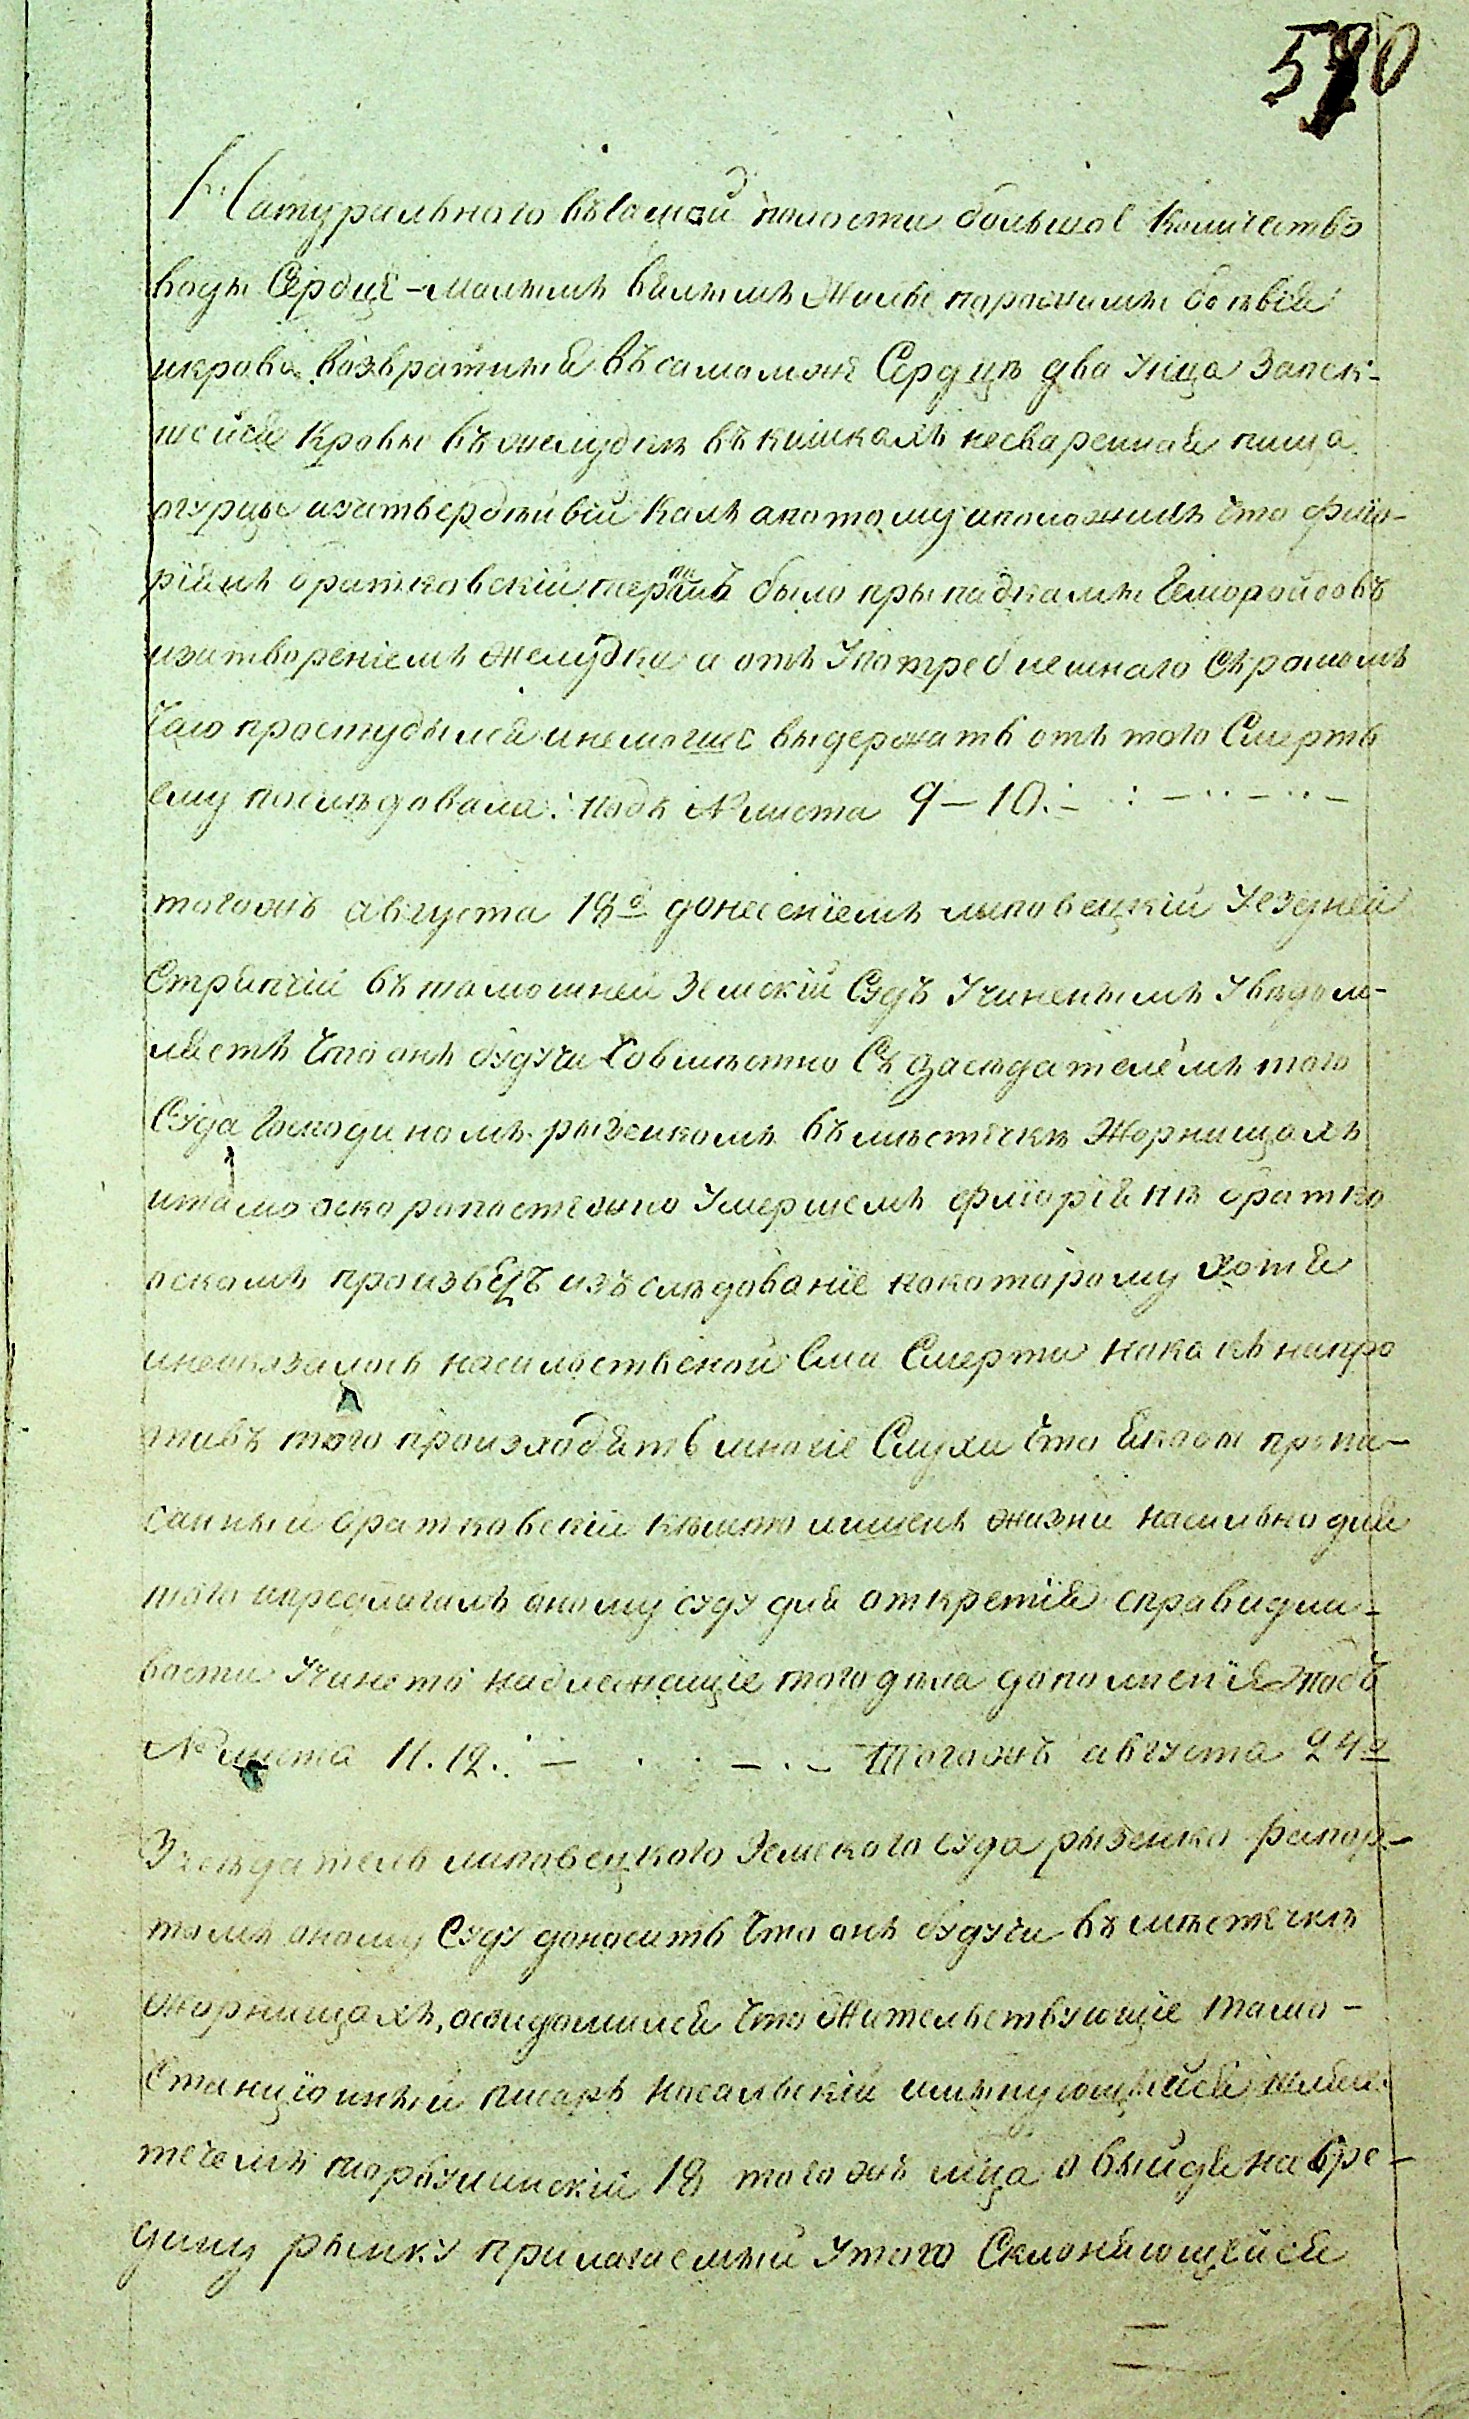 570
Натурального въ самой полости большое количество
воды Сердце – малымъ бѣлымъ жилы порожными бовсѣй
и крови возвратныя въ самомже Сердцѣ два унца запек-
шейся кровы въ желудкѣ въ кишкахъ несваренная пища
огурцы изатвердѣвій калъ апотому иположилъ что флио-
ріянъ братковскій терпилъ было прыпадками Гемороидовъ
изатвореніемъ желудка и отъ употреблешнаго съ ромомъ
чаю простудылся и немогше выдержать отъ того Смерть
ему послѣдовала: подъ № листа 9–10.
тогожъ августа 18го донесеніемъ лыповецкій уездней
Стряпчій въ тамошней Земскій Судъ учиненымъ увѣдом-
ляетъ что онъ будучи совмѣстно съ засѣдателемъ того
Суда Господиномъ рыбенкомъ въ мѣстечкѣ Жорнищахъ
итамо оскоропостежно умершемъ флиоріянѣ братко
вскомъ произвелъ изъслѣдованіе покоторому хотя
инеоказалось насильственой Ему Смерти знаковъ напро
тивъ того произходять многіе Слухи что якобы препи-
санный братковскій кѣмто лишенъ жизни насильно для
того и предлагалъ оному суду для открстія справидли-
вости учинеть надлежащіе того дѣла дополненія подъ
№ листа 11. 12. Тогожъ августа 24го
Засѣдатель липовецкого Земского суда рыбенко Рапор-
томъ оному Суду доносить что онъ будучи въ мѣстечкѣ
жорнищахъ, освидомился что Жительствующіе тамо
Станціонный писарь косальскій имѣнующейся шлях-
течемъ 18 тогожъ мца выйдя на сре-
дину рынку прилюдемый утого Склоняющейся